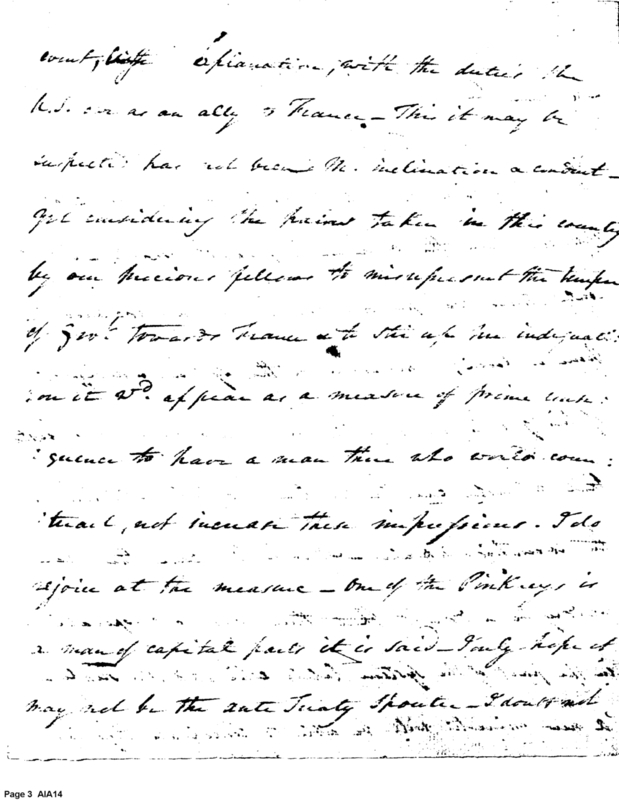 explanation, with the duties the
U.S. owe as an ally of France – This it may be
has not been M. inclination a conduct –
Yet considering the pains taken in this country
by our precious fellows to misrepresent the temper
of Govt. towards France & to stir up her indignati:
:on it wd. appear as a measure of prime conse:
:quence to have a man there who would coun:
:teract, not increase these impressions. I do
rejoice at the measure – One of the Pinkneys is
a man of capital parts it is said – I only hope it
may not be the ante Treaty Spouter – I doubt not
Page 3 AIA14